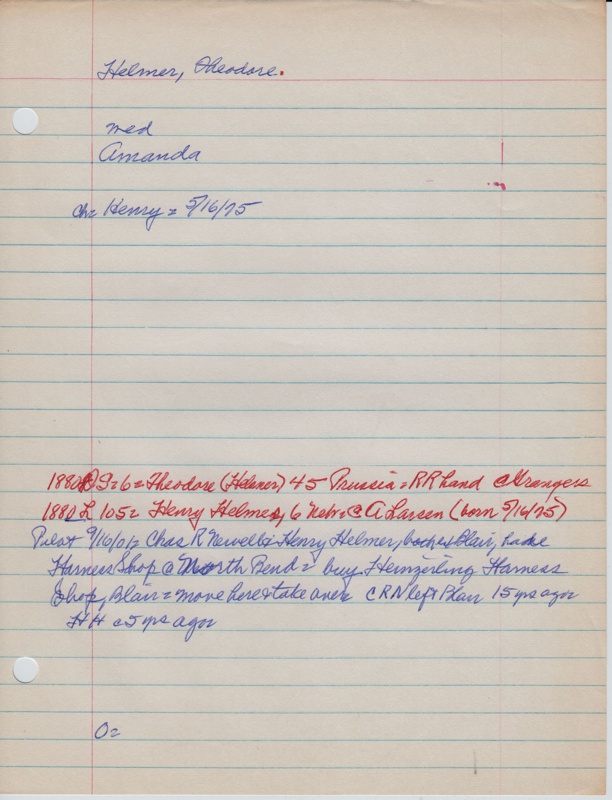 Helmer, Theodore.
med
Amanda
ch= Henry = 5/16/75
1880 S=6= Theodore (Helmer) 45 Prussia = RR hand c Strangers
1880 L 105= Henry Helmer, 6 Neb= c A Larsen (born 5/16/75)
Pilot 9/16/01= Chas R Newell & Henry Helmer, both Blair, had
Harness Shop @ North Bend = buy Heinzerling Harness
Shop, Blair = move here & take over CRN left Blair 15 yrs ago
HH c5 yrs ago
O=